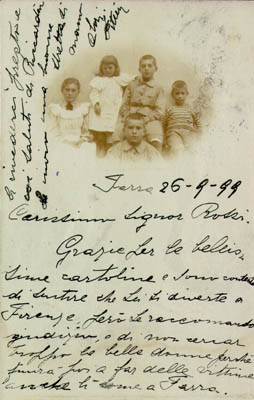 Farra 26-9-99
Carissimo Signor Rossi.
Grazie per le bellis-
sime cartoline e sono contento
di sentire che Lei si diverte a
Firenze, però le raccomando
giudizio, e di non cercar
troppo le belle donne perchè
finirà poi a far delle vittime
anche lì come a Farra.
a rivederci presto e
coi saluti di
una buona
stretta di
mano